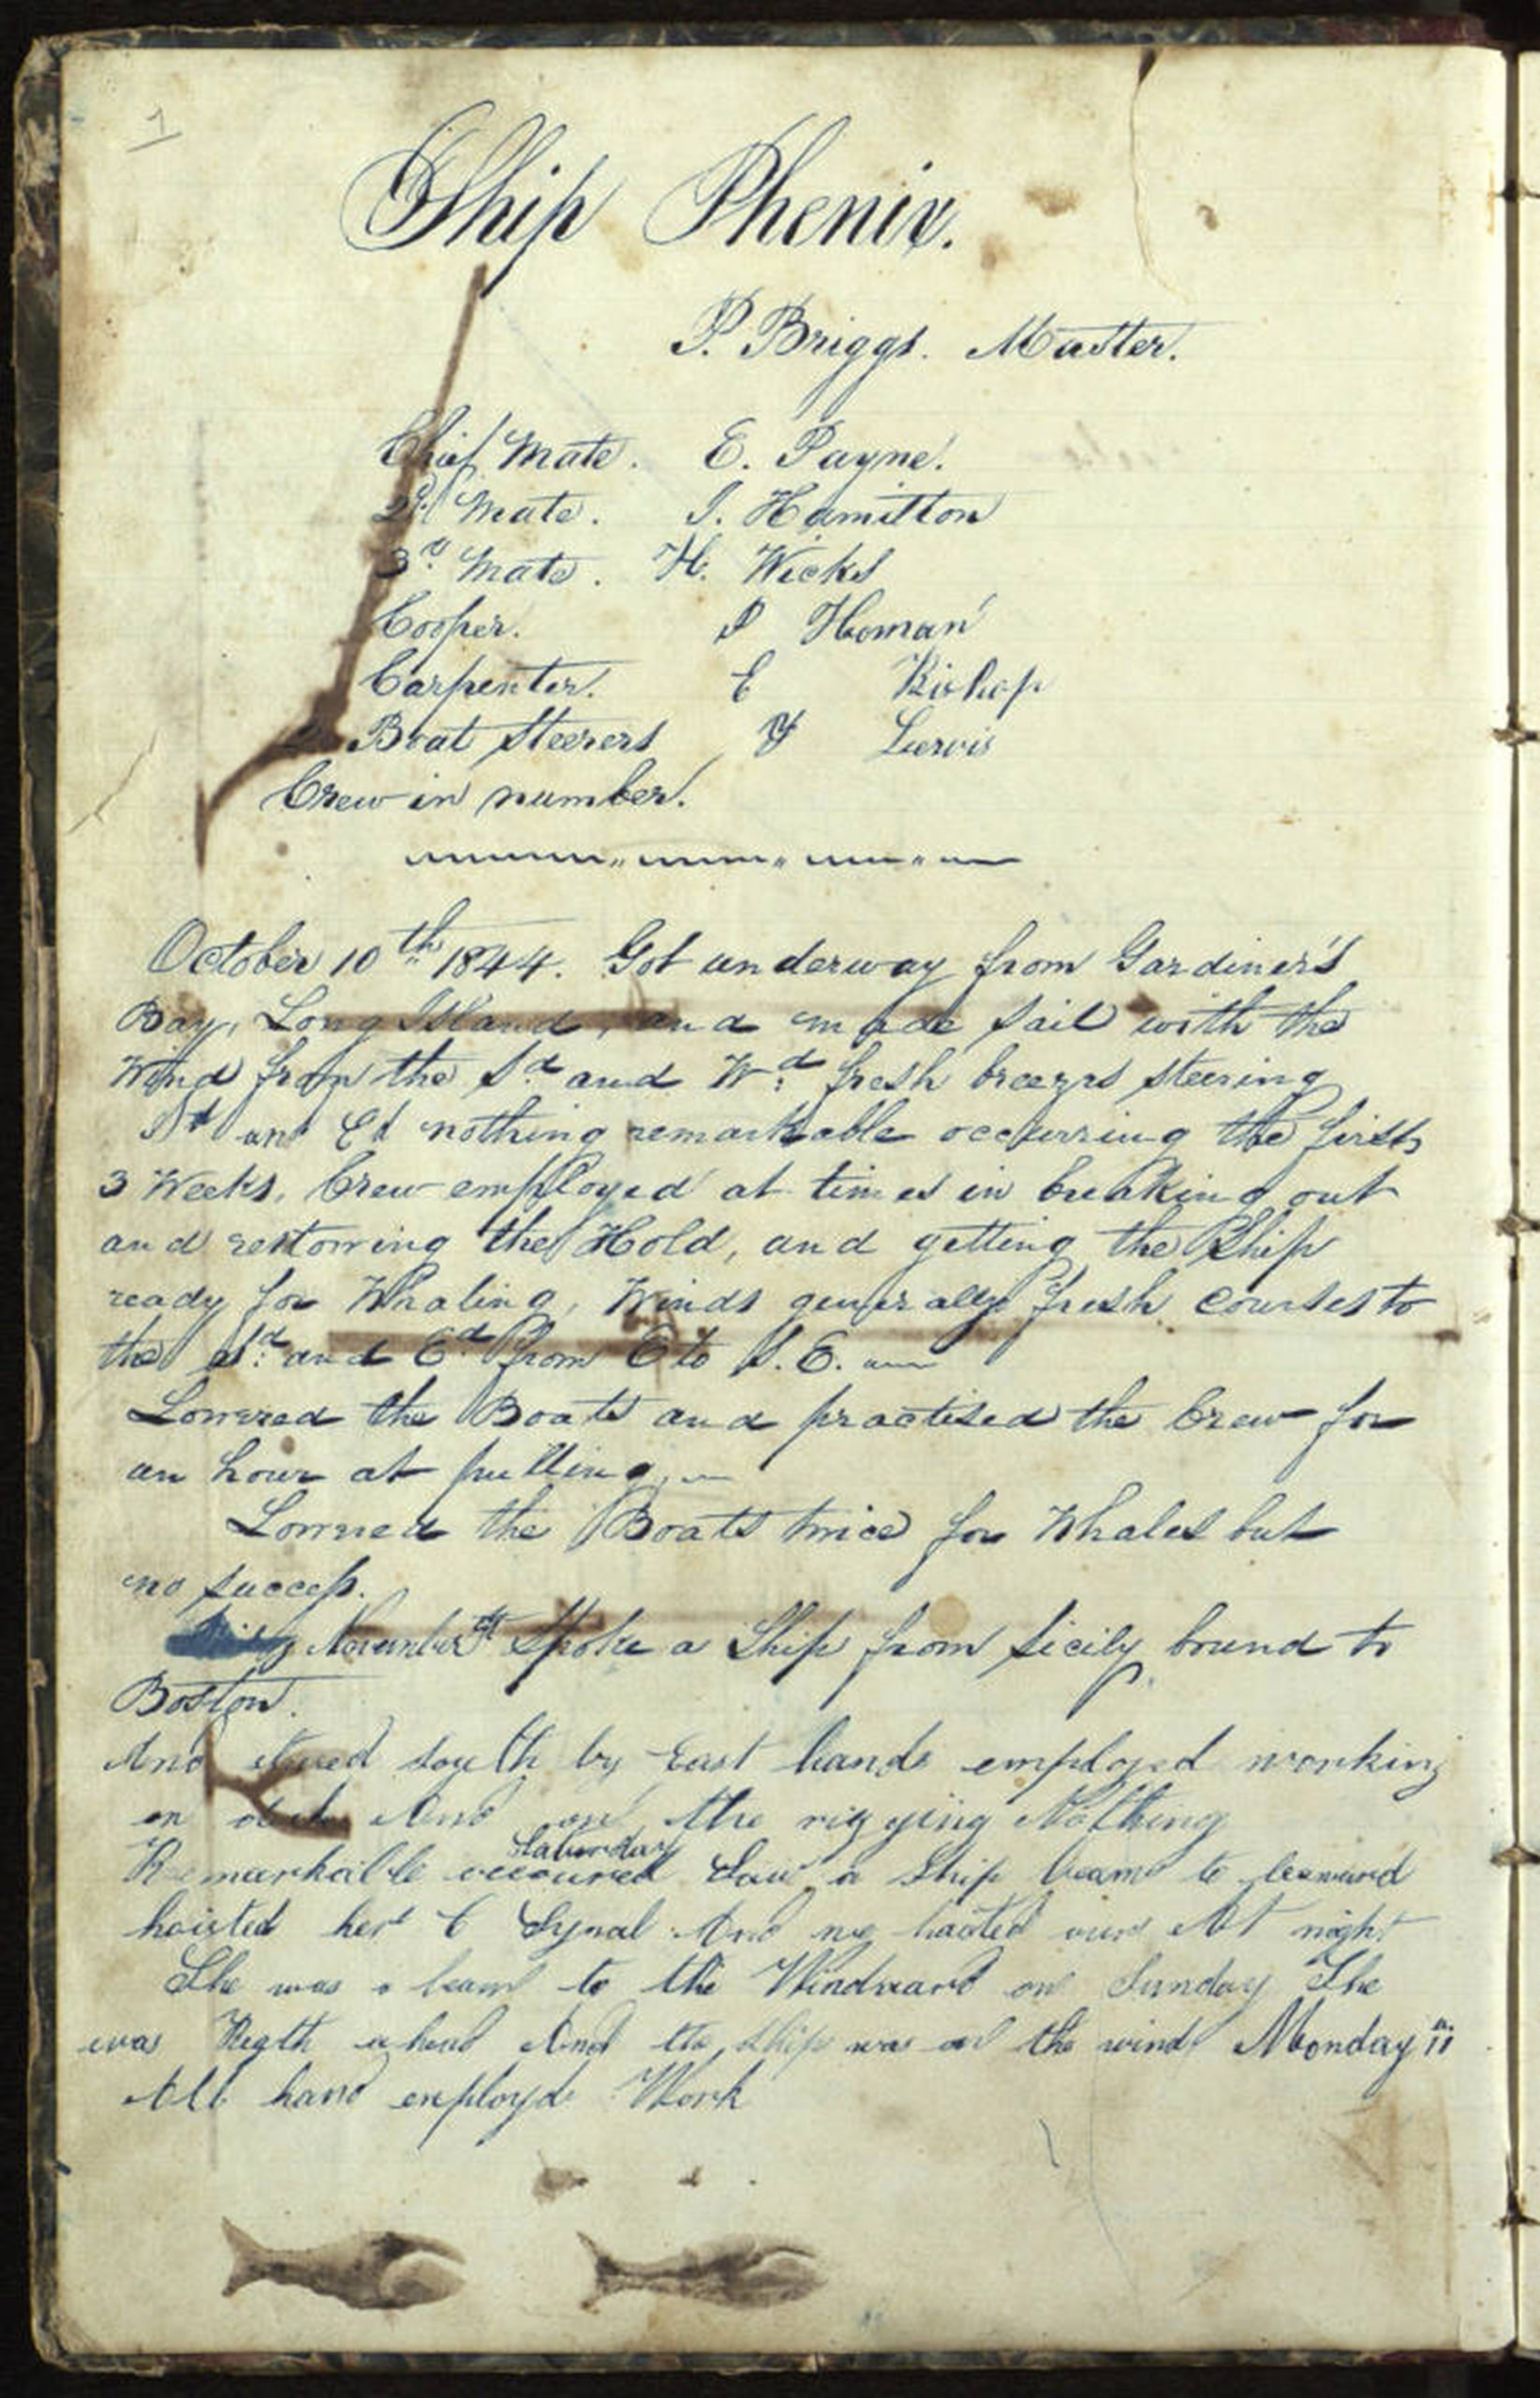 1
Ship Phenix.
P. Briggs. Master.
Chief Mate. E. Payne.
2d Mate. I. Hamilton
3d Mate. H. Wicks
Cooper. I Homan
Carpenter. E Bishop
Boat Steerers Y Lewis
Crew in number.
October 10th 1844. Got underway from Gardiner's
Bay, Long Island, and made sail with the
Wind from the Sd and Wd fresh breezes steering
Sd and Ed nothing remarkable occurring the first
3 Weeks. Crew employed at times in breaking out
and restowing the Hold, and getting the Ship
ready for Whaling, Winds generally fresh courses to
the Sd and Ed from E to S.E.
Lowered the Boats and practised the Crew for
an hour at pulling.
Lowered the Boats twice for Whales but
no success.
November Spoke a Ship from Sicily bound to
Boston.
And stured south by East hands employed working
on deck And on the rigging Nothing
Saturday
Remarkable occoured Saw a Ship beam to leeward
hoisted her Synal And we hasted ours At night
She was a beam to the Windward on Sunday She
was Rigth ahead And the ship was on the wind Monday 11
All hand employd Work